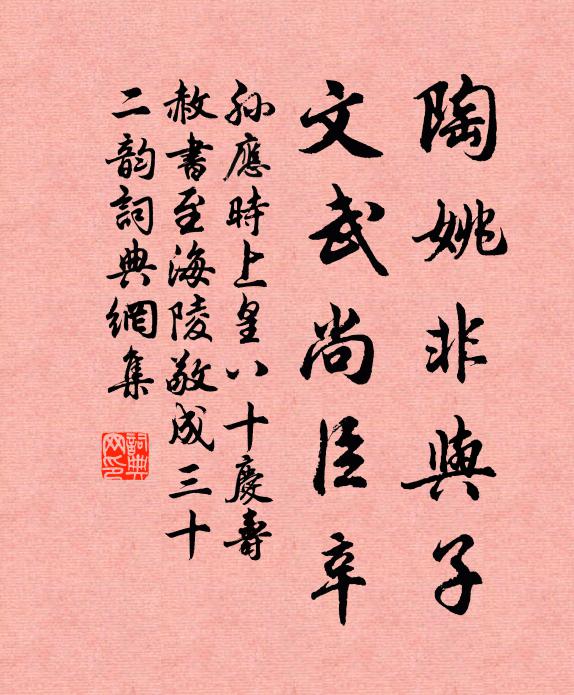 陶姚非與子
文武尚臣辛
孫應時上皇八十慶壽
赦書至海陵敬成三十
二韵詞典網集
詞典
网印